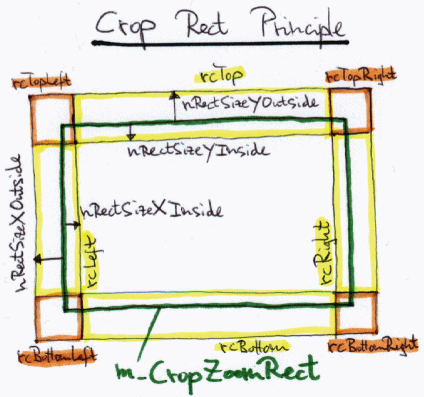 Crop Rect Principle
rcTopLeft
rcTop
rcTopRight
nRectSizeYOutside
nRectSizeYInside
nRectSizeXOutside
nRectSizeXInside
rcLeft
rcRight
rcBottomLeft
rcBottom
rcBottomRight
m_CropZoomRect